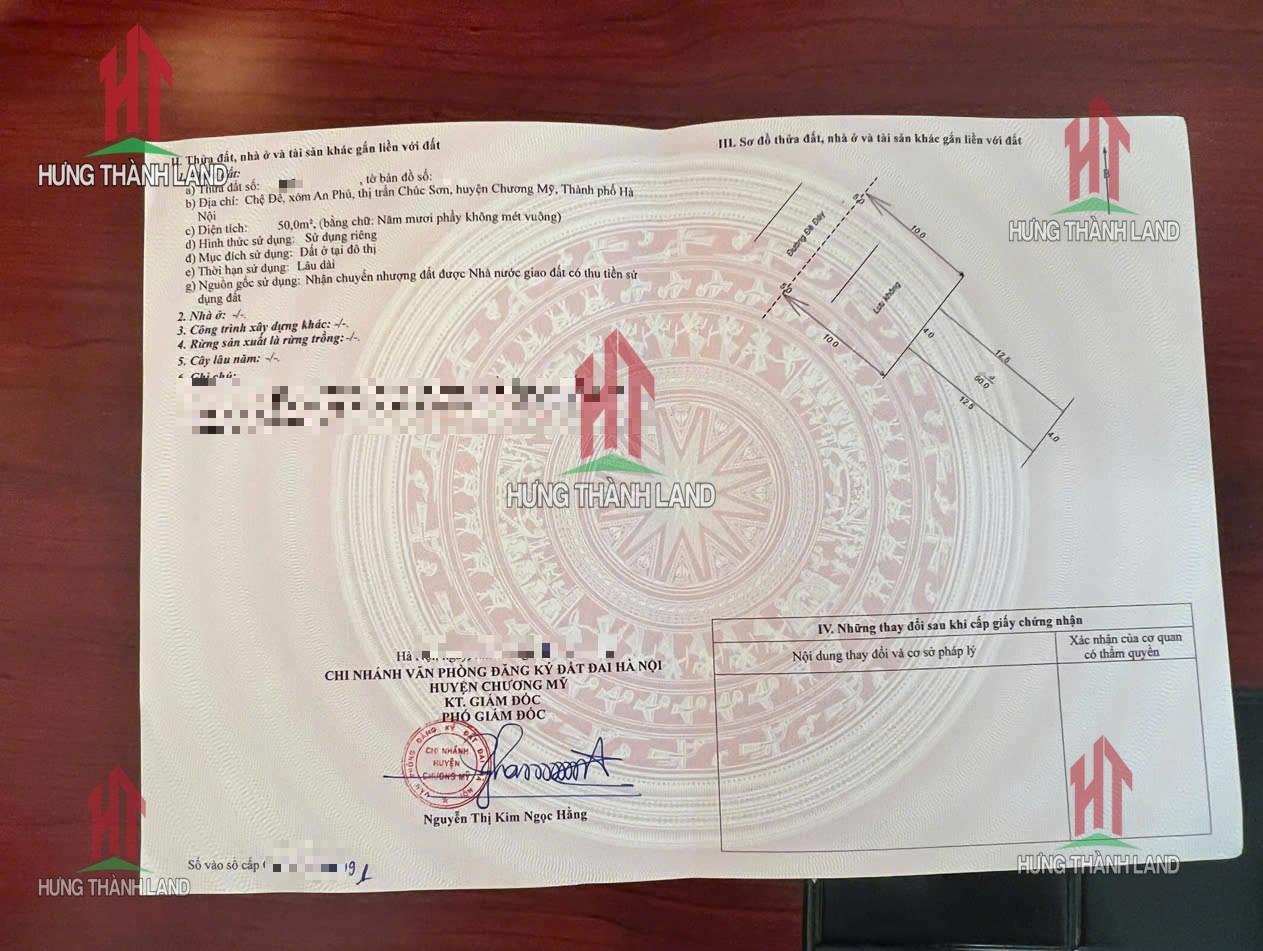 II. Thửa đất, nhà ở và tài sản khác gắn liền với đất
đất:
a) Thửa đất số: , tờ bản đồ số:
b) Địa chỉ: Chệ Đê, xóm An Phú, thị trấn Chúc Sơn, huyện Chương Mỹ, Thành phố Hà
Nội
c) Diện tích: 50,0m², (bằng chữ: Năm mươi phẩy không mét vuông)
d) Hình thức sử dụng: Sử dụng riêng
đ) Mục đích sử dụng: Đất ở tại đô thị
e) Thời hạn sử dụng: Lâu dài
g) Nguồn gốc sử dụng: Nhận chuyển nhượng đất được Nhà nước giao đất có thu tiền sử
dụng đất
2. Nhà ở: -/-.
3. Công trình xây dựng khác: -/-.
4. Rừng sản xuất là rừng trồng: -/-.
5. Cây lâu năm: -/-.
Ghi chú:
Hà
CHI NHÁNH VĂN PHÒNG ĐĂNG KÝ ĐẤT ĐAI HÀ NỘI
HUYỆN CHƯƠNG MỸ
KT. GIÁM ĐỐC
PHÓ GIÁM ĐỐC
VĂN PHÒNG ĐĂNG KÝ ĐẤT ĐAI HÀ NỘI
CHI NHÁNH
HUYỆN
CHƯƠNG MỸ
Nguyễn Thị Kim Ngọc Hằng
Số vào sổ cấp
III. Sơ đồ thửa đất, nhà ở và tài sản khác gắn liền với đất
B
Đường Đê Đáy
10.0
Lưu không
10.0
4.0
12.5
50.0
12.5
4.0
IV. Những thay đổi sau khi cấp giấy chứng nhận
Nội dung thay đổi và cơ sở pháp lý
Xác nhận của cơ quan
có thẩm quyền
HT
HƯNG THÀNH LAND
HT
HƯNG THÀNH LAND
HT
HƯNG THÀNH LAND
HT
HƯNG THÀNH LAND
HT
HƯNG THÀNH LAND